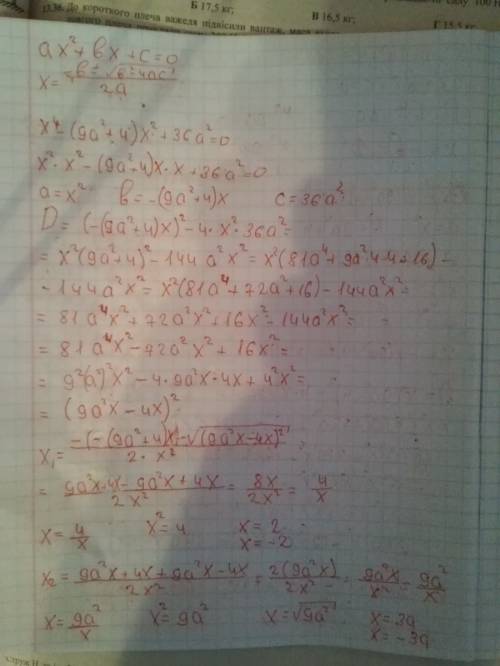 13.36. До короткого плеча важеля підвісили вантаж, маса
Б 17,5 кг;
В 16,5 кг;
Г 15,5 кг.
силу 100 Н
ax² + bx + c = 0
x = -b ± √b² - 4ac / 2a
x⁴ - (9a² + 4)x² + 36a² = 0
x² · x² - (9a² + 4)x · x + 36a² = 0
a = x² b = -(9a² + 4)x c = 36a²
D = (-(9a² + 4)x)² - 4 · x² · 36a² =
= x²(9a² + 4)² - 144a²x² = x²(81a⁴ + 9a² · 4 · 4 + 16) -
- 144a²x² = x²(81a⁴ + 72a² + 16) - 144a²x² =
= 81a⁴x² + 72a²x² + 16x² - 144a²x² =
= 81a⁴x² - 72a²x² + 16x² =
= 9²(a²)²x² - 4 · 9a²x · 4x + 4²x² =
= (9a²x - 4x)²
x₁ = -(-(9a² + 4)x) - √(9a²x - 4x)² / 2 · x² =
= 9a²x + 4x - 9a²x + 4x / 2x² = 8x / 2x² = 4 / x
x = 4 / x x² = 4 x = 2
x = -2
x₂ = 9a²x + 4x + 9a²x - 4x / 2x² = 2(9a²x) / 2x² = 9a²x / x² = 9a² / x
x = 9a² / x x² = 9a² x = √9a² x = 3a
x = -3a